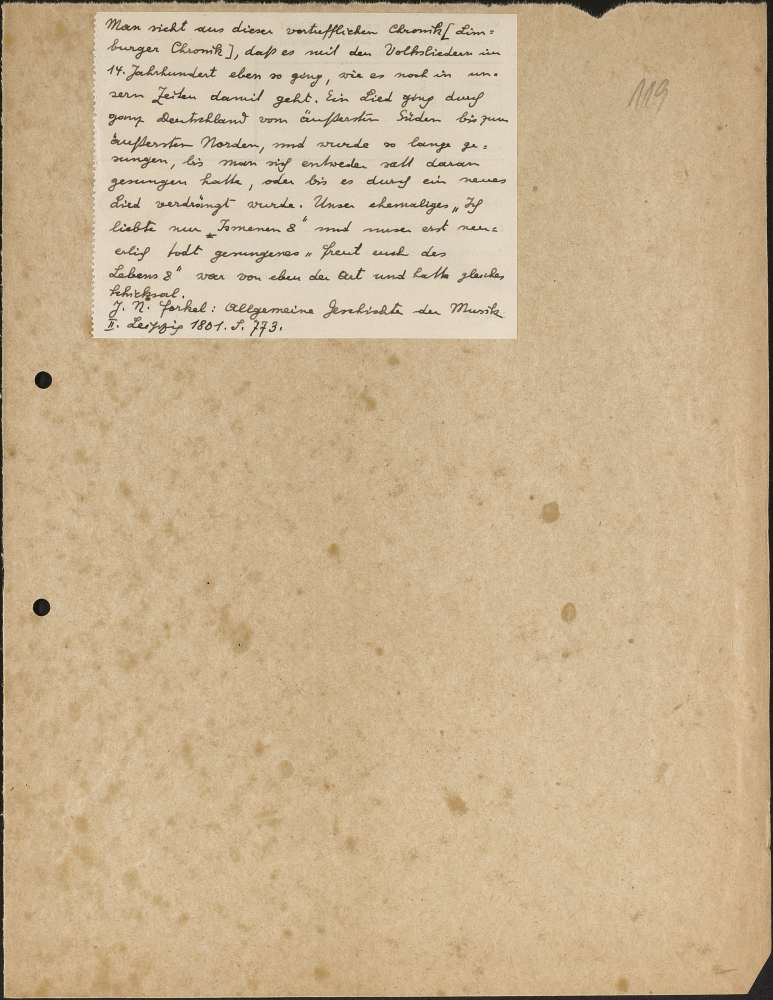 119
Man sieht aus dieser vortrefflichen Chronik [Lim=
burger Chronik], daß es mit den Volksliedern im
14. Jahrhundert eben so ging, wie es noch in un=
sern Zeiten damit geht. Ein Lied ging durch
ganz Deutschland vom äußersten Süden bis zum
äußersten Norden, und wurde so lange ge=
sungen, bis man sich entweder satt daran
gesungen hatte, oder bis es durch ein neues
Lied verdrängt wurde. Unser ehemaliges „Ich
liebte nur Ismenen &" und unser erst neu=
erlich todt gesungenes „freut euch des
Lebens &" war von eben der Art und hatte gleiches
Schicksal.
J. N. Forkel: Allgemeine Geschichte der Musik
II. Leipzig 1801. S. 773.